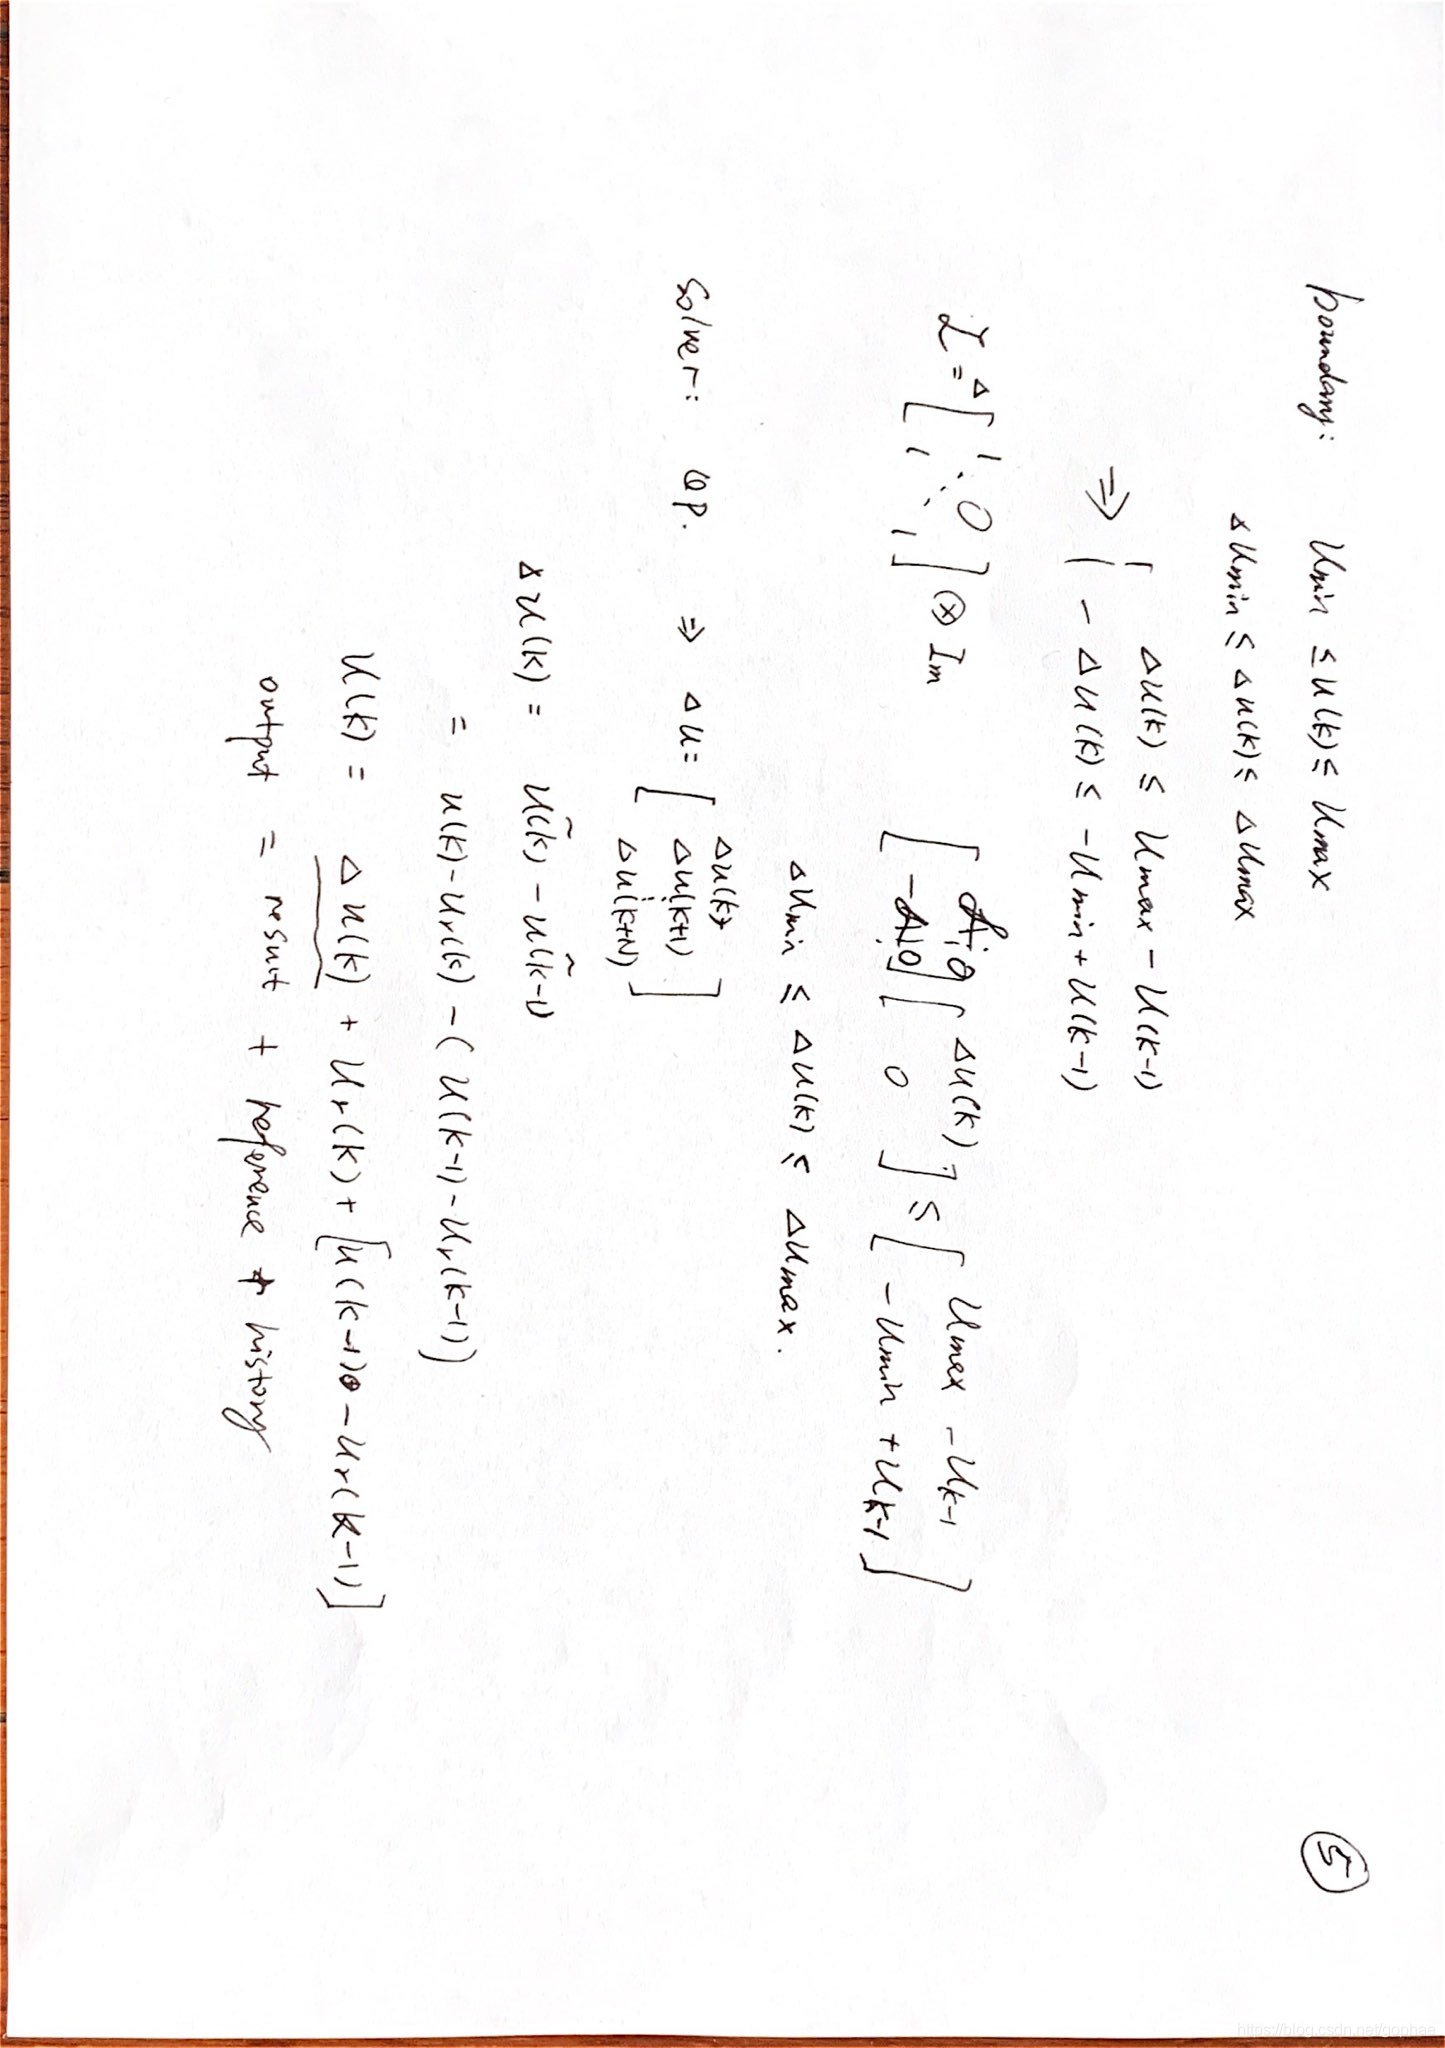 ⑤
boundary: Umin ≤ u(k) ≤ Umax
ΔUmin ≤ Δu(k) ≤ ΔUmax
⇒ { Δu(k) ≤ Umax - U(k-1)
- Δu(k) ≤ -Umin + U(k-1)
≜ [ 1 0 ⋱ 1 1 ] ⊗ Im
[ 0 -0 ] [ Δu(k) 0 ] ≤ [ Umax - Uk-1 -Umin + Uk-1 ]
ΔUmin ≤ Δu(k) ≤ ΔUmax.
Solver: QP. ⇒ Δu = [ Δu(k) Δu(k+1) ⋮ Δu(k+N) ]
Δu(k) = ũ(k) - ũ(k-1)
= u(k) - ur(k) - (u(k-1) - ur(k-1))
u(k) = Δu(k) + ur(k) + [u(k-1) - ur(k-1)]
output = result + reference + history
https://blog.csdn.net/gophae